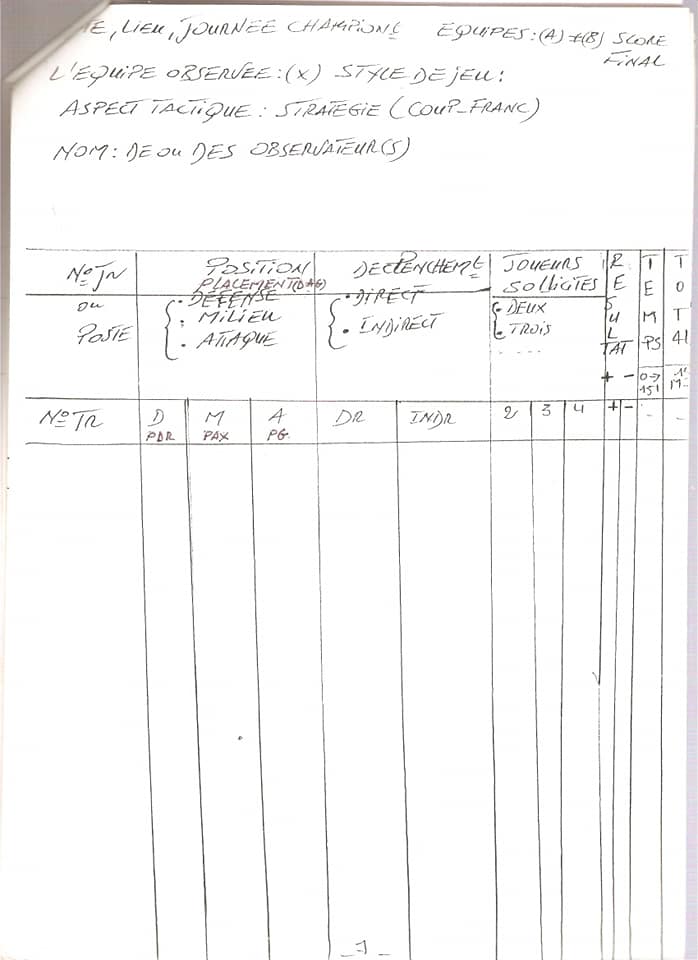 TE, LIEU, JOURNÉE CHAMPIONS EQUIPES: (A) ≠ (B) SCORE
FINAL
L'EQUIPE OBSERVÉE: (X) STYLE DE JEU:
ASPECT TACTIQUE: STRATEGIE (COUP-FRANC)
NOM: DE OU DES OBSERVATEUR(S)
NO JR
OU
POSTE
POSITION
PLACEMENT (DAG)
. DÉFENSE
. MILIEU
. ATTAQUE
DECLENCHEMT
. DIRECT
. INDIRECT
JOUEURS
SOLLICITÉS
. DEUX
. TROIS
....
RESULTAT
+ -
TEMPS
0→
15'
TOT
NO TR D M A DR INDR 2 3 4 + -
PDR PAX PG.
- 1 -